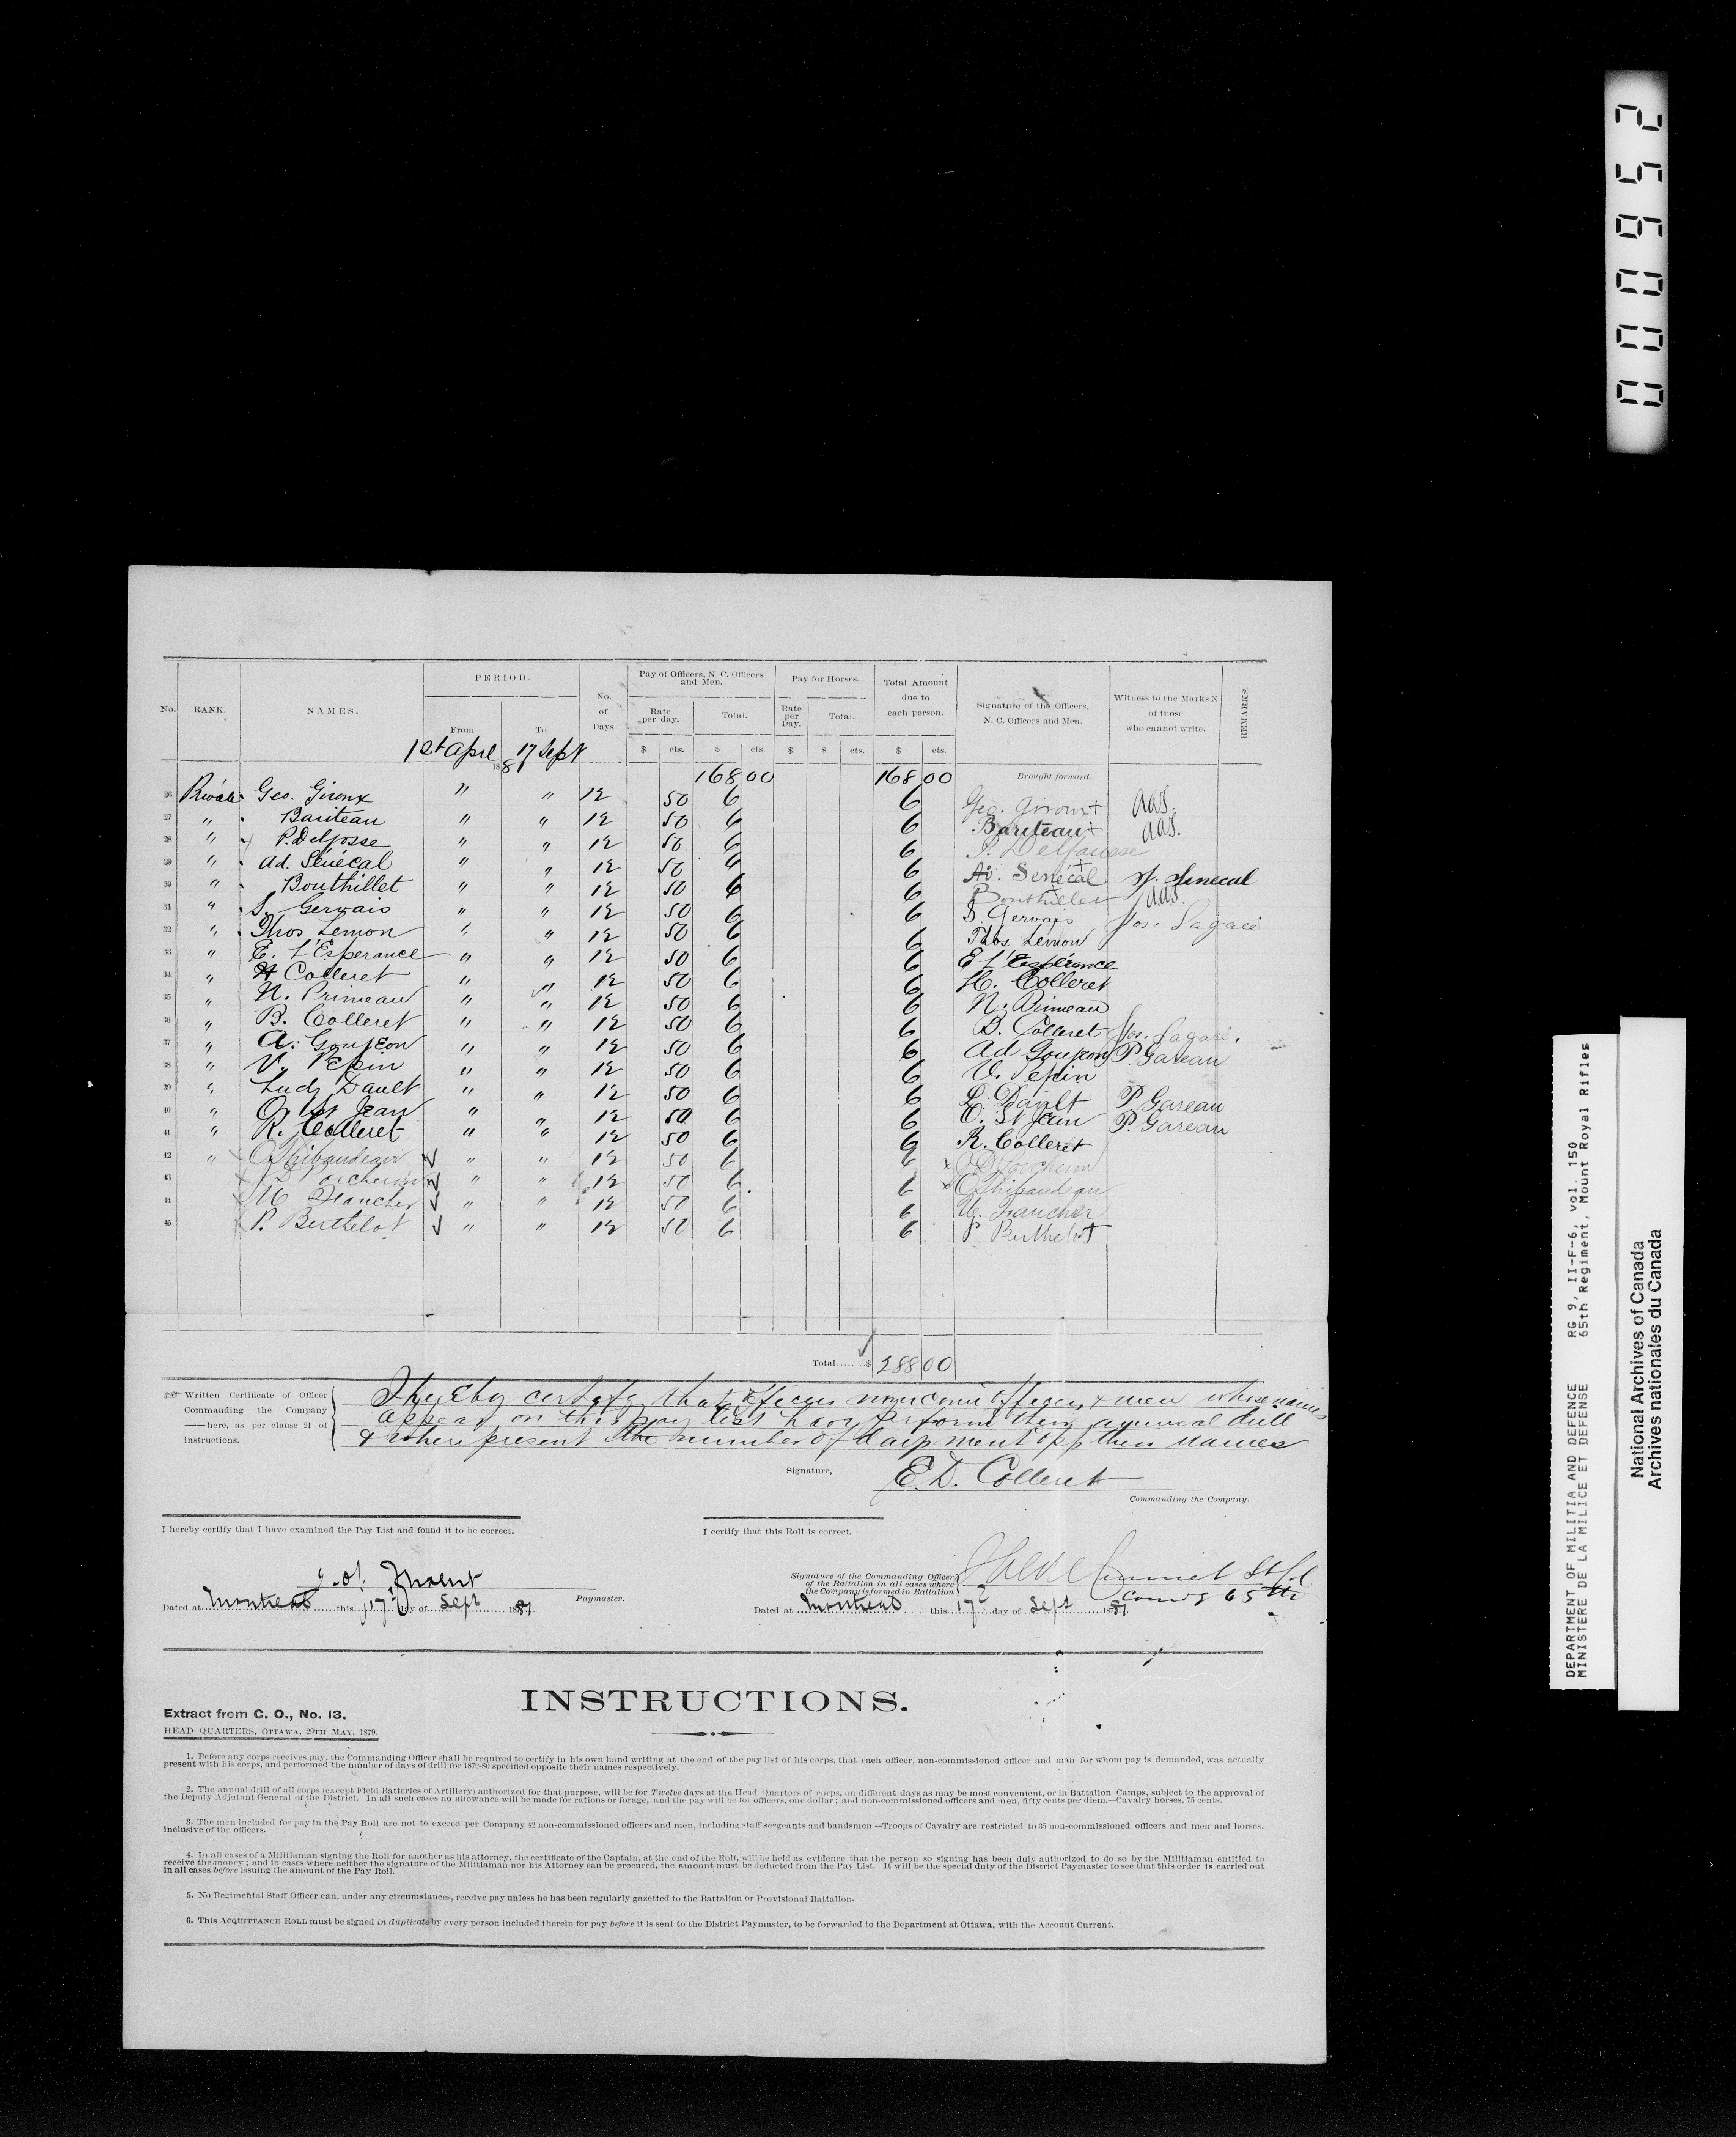 000952
PERIOD. Pay of Officers, N. C. Officers and Men. Pay for Horses. Total Amount due to each person.
No. RANK. NAMES. From To No. of Days. Rate per day. Total. Rate per Day. Total. Signature of the Officers, N. C. Officers and Men. Witness to the Marks X of those who cannot write. REMARKS.
1st April 17 Sept
$ cts. $ cts. $ $ cts. $ cts.
168 00 168 00 Brought forward.
26 Private Geo. Giroux " " 12 50 6 6 Geo. Giroux + aas.
27 " Bariteau " " 12 50 6 6 Bariteau + aas.
28 " P. Delfosse " " 12 50 6 6 P. Delfausse
29 " Ad. Sénécal " " 12 50 6 6 Ad. Senécal + Senecal
30 " Bouthillet " " 12 50 6 6 Bouthiller aas.
31 " S. Gervais " " 12 50 6 6 S. Gervais Jos. Lagacé
32 " Thos Lemon " " 12 50 6 6 Thos Lemon
33 " E. L'Esperance " " 12 50 6 6 E L'Espérance
34 " H Colleret " " 12 50 6 6 H. Colleret
35 " N. Primeau " " 12 50 6 6 N. Primeau
36 " B. Colleret " " 12 50 6 6 B. Colleret Jos. Lagacé.
37 " A. Goujeon " " 12 50 6 6 Ad Goujeon P. Gareau
38 " V. Pepin " " 12 50 6 6 V. Pepin
39 " Ludg Dault " " 12 50 6 6 L. Dault P Gareau
40 " O. St Jean " " 12 50 6 6 O. St Jean P. Gareau
41 " R. Colleret " " 12 50 6 6 R. Colleret
42 " O Thibaudeau " " 12 50 6 6 x O D Porcheron
43 J D Porcheron " " 12 50 6 6 x O Thibaudeau
44 U Faucher " " 12 50 6 6 U. Faucher
45 P. Berthelot " " 12 50 6 6 P Berthelot
Total......$ 288 00
Written Certificate of Officer Commanding the Company —— here, as per clause 21 of instructions.
I hereby certify that officers non com officers & men whose names
appear on this pay list have perform their annual drill
& where present the number of days ment opp their names
Signature, E. D. Colleret
Commanding the Company.
I hereby certify that I have examined the Pay List and found it to be correct.
I certify that this Roll is correct.
Signature of the Commanding Officer of the Battalion in all cases where the Company is formed in Battalion
Comdg 65th
Paymaster.
Dated at Montreal this 17 day of Sept 1881
Dated at Montreal this 17 day of Sept 1881
INSTRUCTIONS.
Extract from C. O., No. 13.
HEAD QUARTERS, OTTAWA, 29TH MAY, 1879.
1. Before any corps receives pay, the Commanding Officer shall be required to certify in his own hand writing at the end of the pay list of his corps, that each officer, non-commissioned officer and man for whom pay is demanded, was actually
present with his corps, and performed the number of days of drill for 1879-80 specified opposite their names respectively.
2. The annual drill of all corps (except Field Batteries of Artillery) authorized for that purpose, will be for Twelve days at the Head Quarters of corps, on different days as may be most convenient, or in Battalion Camps, subject to the approval of
the Deputy Adjutant General of the District. In all such cases no allowance will be made for rations or forage, and the pay will be for officers, one dollar; and non-commissioned officers and men, fifty cents per diem.—Cavalry horses, 75 cents.
3. The men included for pay in the Pay Roll are not to exceed per Company 42 non-commissioned officers and men, including staff sergeants and bandsmen—Troops of Cavalry are restricted to 35 non-commissioned officers and men and horses,
inclusive of the officers.
4. In all cases of a Militiaman signing the Roll for another as his attorney, the certificate of the Captain, at the end of the Roll, will be held as evidence that the person so signing has been duly authorized to do so by the Militiaman entitled to
receive the money; and in cases where neither the signature of the Militiaman nor his Attorney can be procured, the amount must be deducted from the Pay List. It will be the special duty of the District Paymaster to see that this order is carried out
in all cases before issuing the amount of the Pay Roll.
5. No Regimental Staff Officer can, under any circumstances, receive pay unless he has been regularly gazetted to the Battalion or Provisional Battalion.
6. This ACQUITTANCE ROLL must be signed in duplicate by every person included therein for pay before it is sent to the District Paymaster, to be forwarded to the Department at Ottawa, with the Account Current.
DEPARTMENT OF MILITIA AND DEFENCE RG 9, II-F-6, vol. 150
MINISTERE DE LA MILICE ET DEFENSE 65th Regiment, Mount Royal Rifles
National Archives of Canada
Archives nationales du Canada